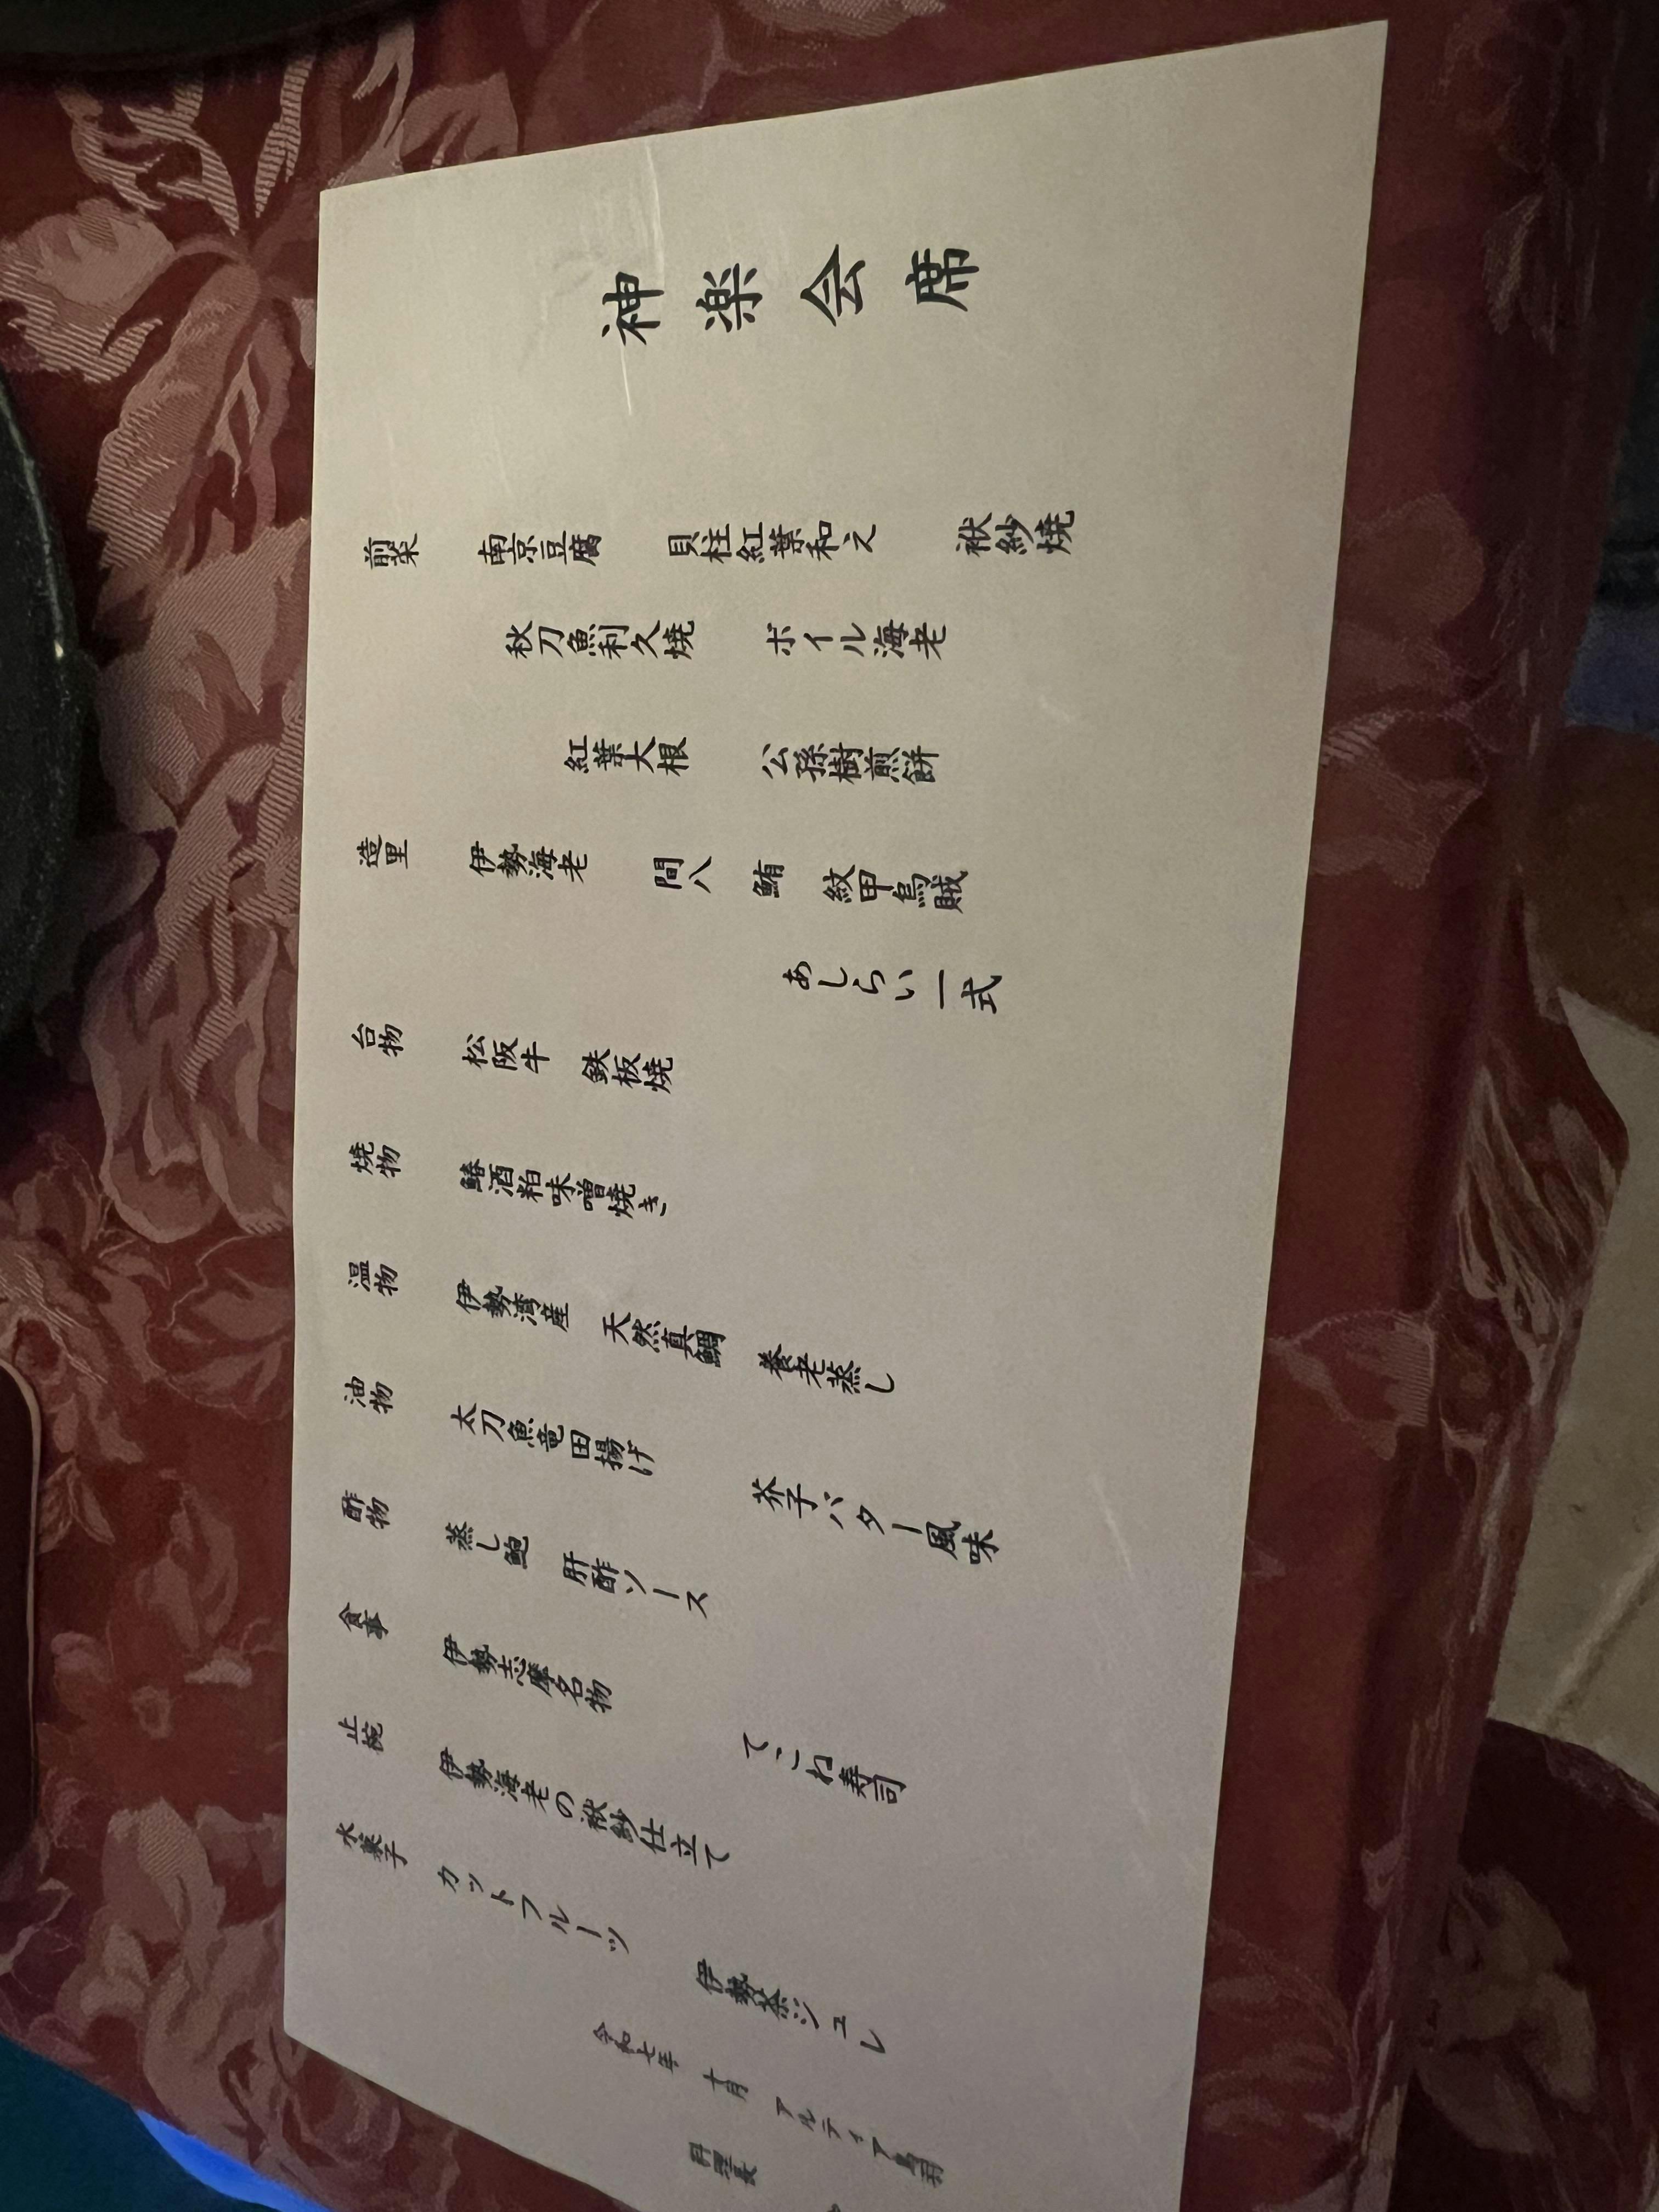 神楽会席
前菜 南京豆腐 貝柱紅葉和え 袱紗焼
秋刀魚利久焼 ボイル海老
紅葉大根 公孫樹煎餅
造里 伊勢海老 間八 鮪 紋甲烏賊
あしらい一式
台物 松阪牛 鉄板焼
焼物 鰆酒粕味噌焼き
温物 伊勢湾産 天然真鯛 養老蒸し
油物 太刀魚竜田揚げ 芥子バター風味
酢物 蒸し鮑 肝酢ソース
食事 伊勢志摩名物 てこね寿司
止椀 伊勢海老の袱紗仕立て
水菓子 カットフルーツ 伊勢茶ジュレ
令和七年 十月 アルティア鳥羽
料理長